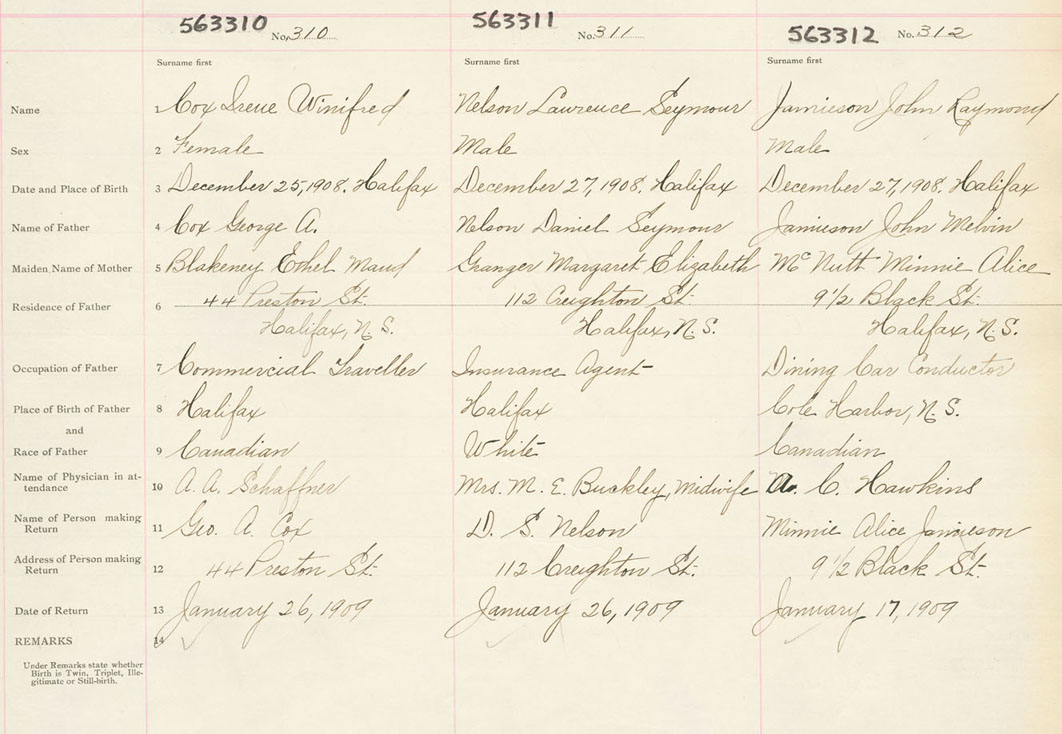 563310 No. 310 563311 No. 311 563312 No. 312
Surname first Surname first Surname first
Name 1 Cox Irene Winifred Nelson Lawrence Seymour Jamieson John Raymond
Sex 2 Female Male Male
Date and Place of Birth 3 December 25, 1908. Halifax December 27, 1908. Halifax December 27, 1908. Halifax
Name of Father 4 Cox George A. Nelson Daniel Seymour Jamieson John Melvin
Maiden Name of Mother 5 Blakeney Ethel Maud Granger Margaret Elizabeth McNutt Minnie Alice
Residence of Father 6 44 Preston St. 112 Creighton St. 9 1/2 Black St.
Halifax, N.S. Halifax, N.S. Halifax, N.S.
Occupation of Father 7 Commercial Traveller Insurance Agent Dining Car Conductor
Place of Birth of Father 8 Halifax Halifax Cole Harbor, N.S.
and
Race of Father 9 Canadian White Canadian
Name of Physician in at-
tendance 10 A. A. Schaffner Mrs. M. E. Buckley, Midwife A. C. Hawkins
Name of Person making
Return 11 Geo. A. Cox D. S. Nelson Minnie Alice Jamieson
Address of Person making
Return 12 44 Preston St. 112 Creighton St. 9 1/2 Black St.
Date of Return 13 January 26, 1909 January 26, 1909 January 17, 1909
REMARKS 14
Under Remarks state whether
Birth is Twin, Triplet, Ille-
gitimate or Still-birth.